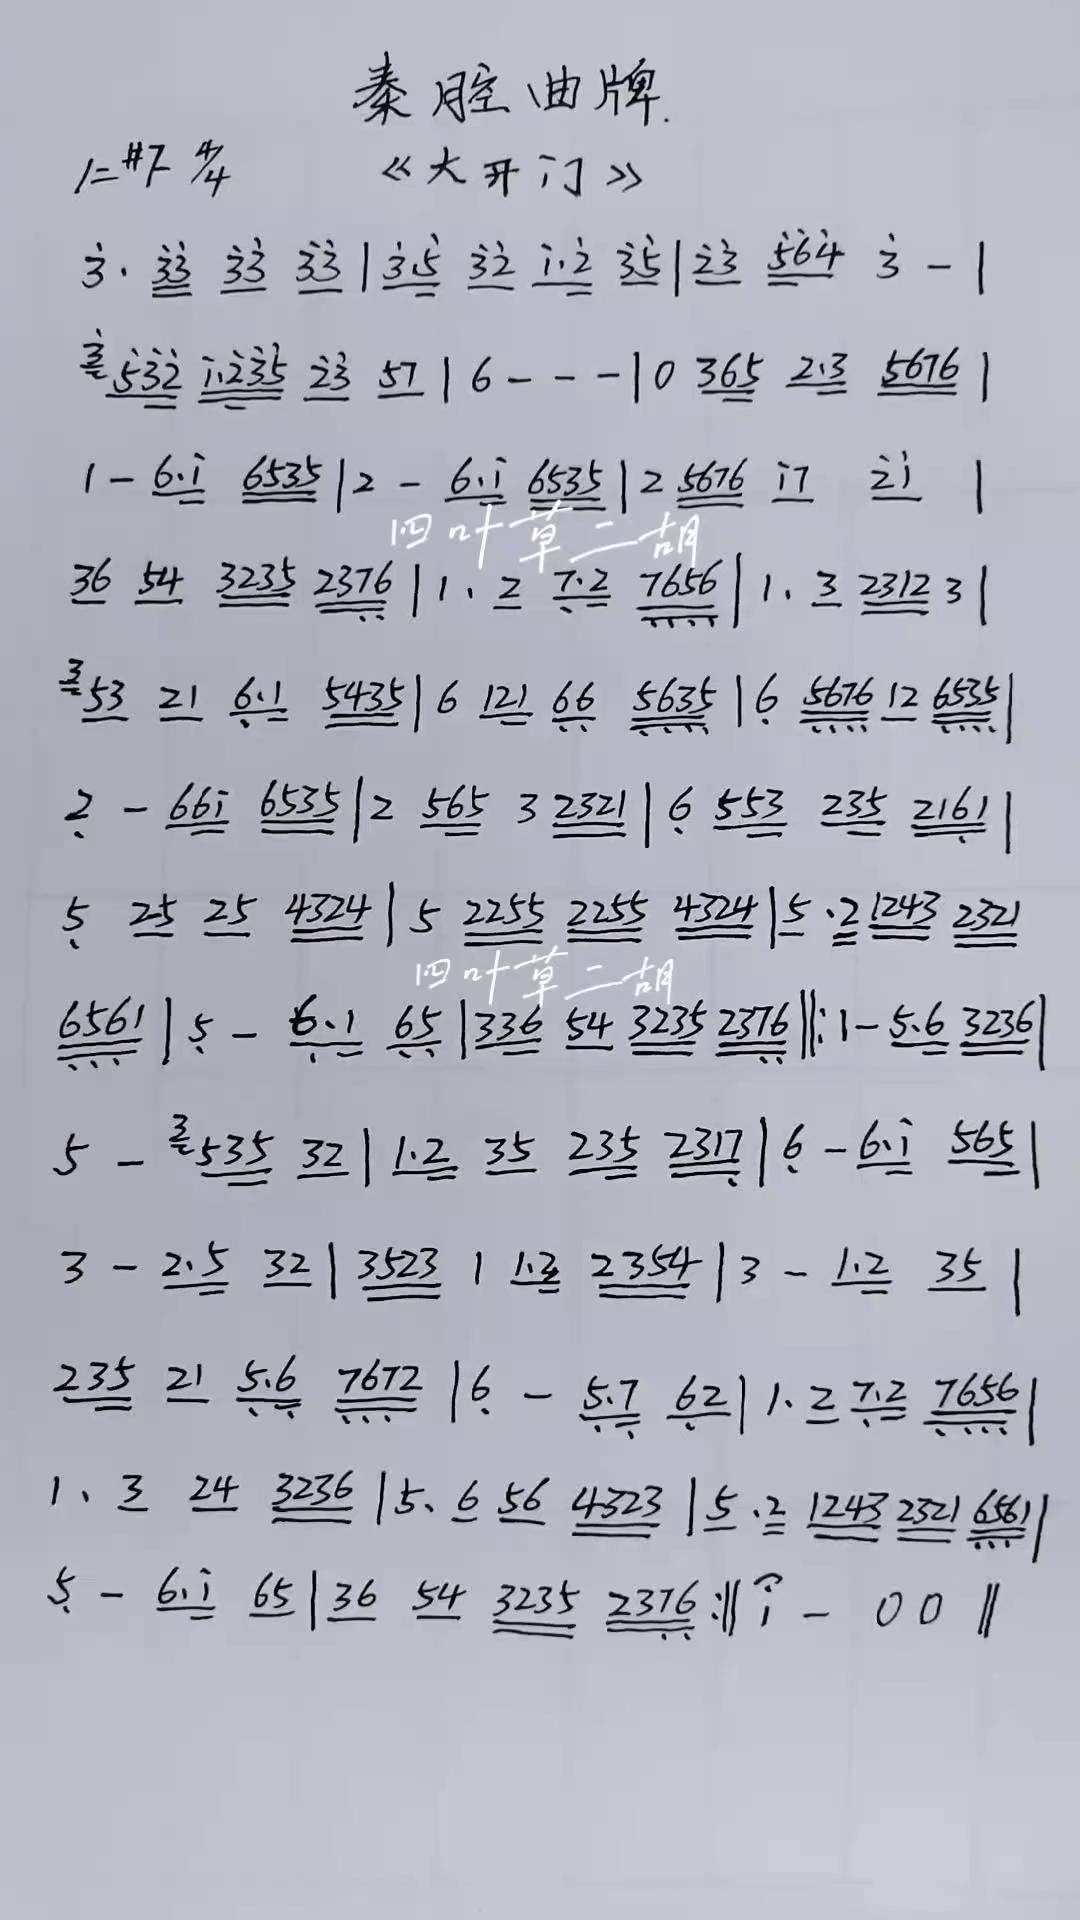 秦腔曲牌
1=#F 4/4 《大开门》
3̇· 3̇3̇ 3̇3̇ 3̇3̇ | 3̇.5̇ 3̇2̇ 1̇.2̇ 3̇5̇ | 2̇3̇ 5̇6̇4̇ 3̇ - |
3̇ 5̇3̇2̇ 1̇.2̇3̇5̇ 2̇3̇ 57 | 6 - - - | 0 365 2.3 5676 |
1 - 6.1̇ 6535 | 2 - 6.1̇ 6535 | 2 5676 1̇7 2̇1̇ |
四叶草二胡
36 54 3235 237̣6̣ | 1. 2 7̣.2 7̣6̣5̣6̣ | 1. 3 2312 3 |
3 53 21 6̣.1 5435 | 6 121 6̣6̣ 5̣6̣3̣5̣ | 6̣ 5̣6̣7̣6̣ 12 6̣5̣3̣5̣ |
2̣ - 661̇ 6535 | 2 565 3 2321 | 6̣ 553 235 216̣1 |
5̣ 25 25 4324 | 5 2255 2255 4324 | 5 .2 1243 2321
四叶草二胡
6̣5̣6̣1 | 5̣ - 6̣.1 6̣5̣ | 336 54 3235 237̣6̣ ‖: 1 - 5.6 3236 |
5 - 3 535 32 | 1.2 35 235 2317̣ | 6̣ - 6.1̇ 565 |
3 - 2.5 32 | 3523 1 1.2 2354 | 3 - 1.2 35 |
235 21 5̣.6̣ 7̣6̣7̣2 | 6̣ - 5̣.7̣ 6̣2 | 1. 2 7̣.2 7̣6̣5̣6̣ |
1. 3 24 3236 | 5. 6 56 4323 | 5 .2 1243 2321 6̣5̣6̣1 |
5̣ - 6.1̇ 65 | 36 54 3235 237̣6̣ :‖ 1̇ - 0 0 ‖